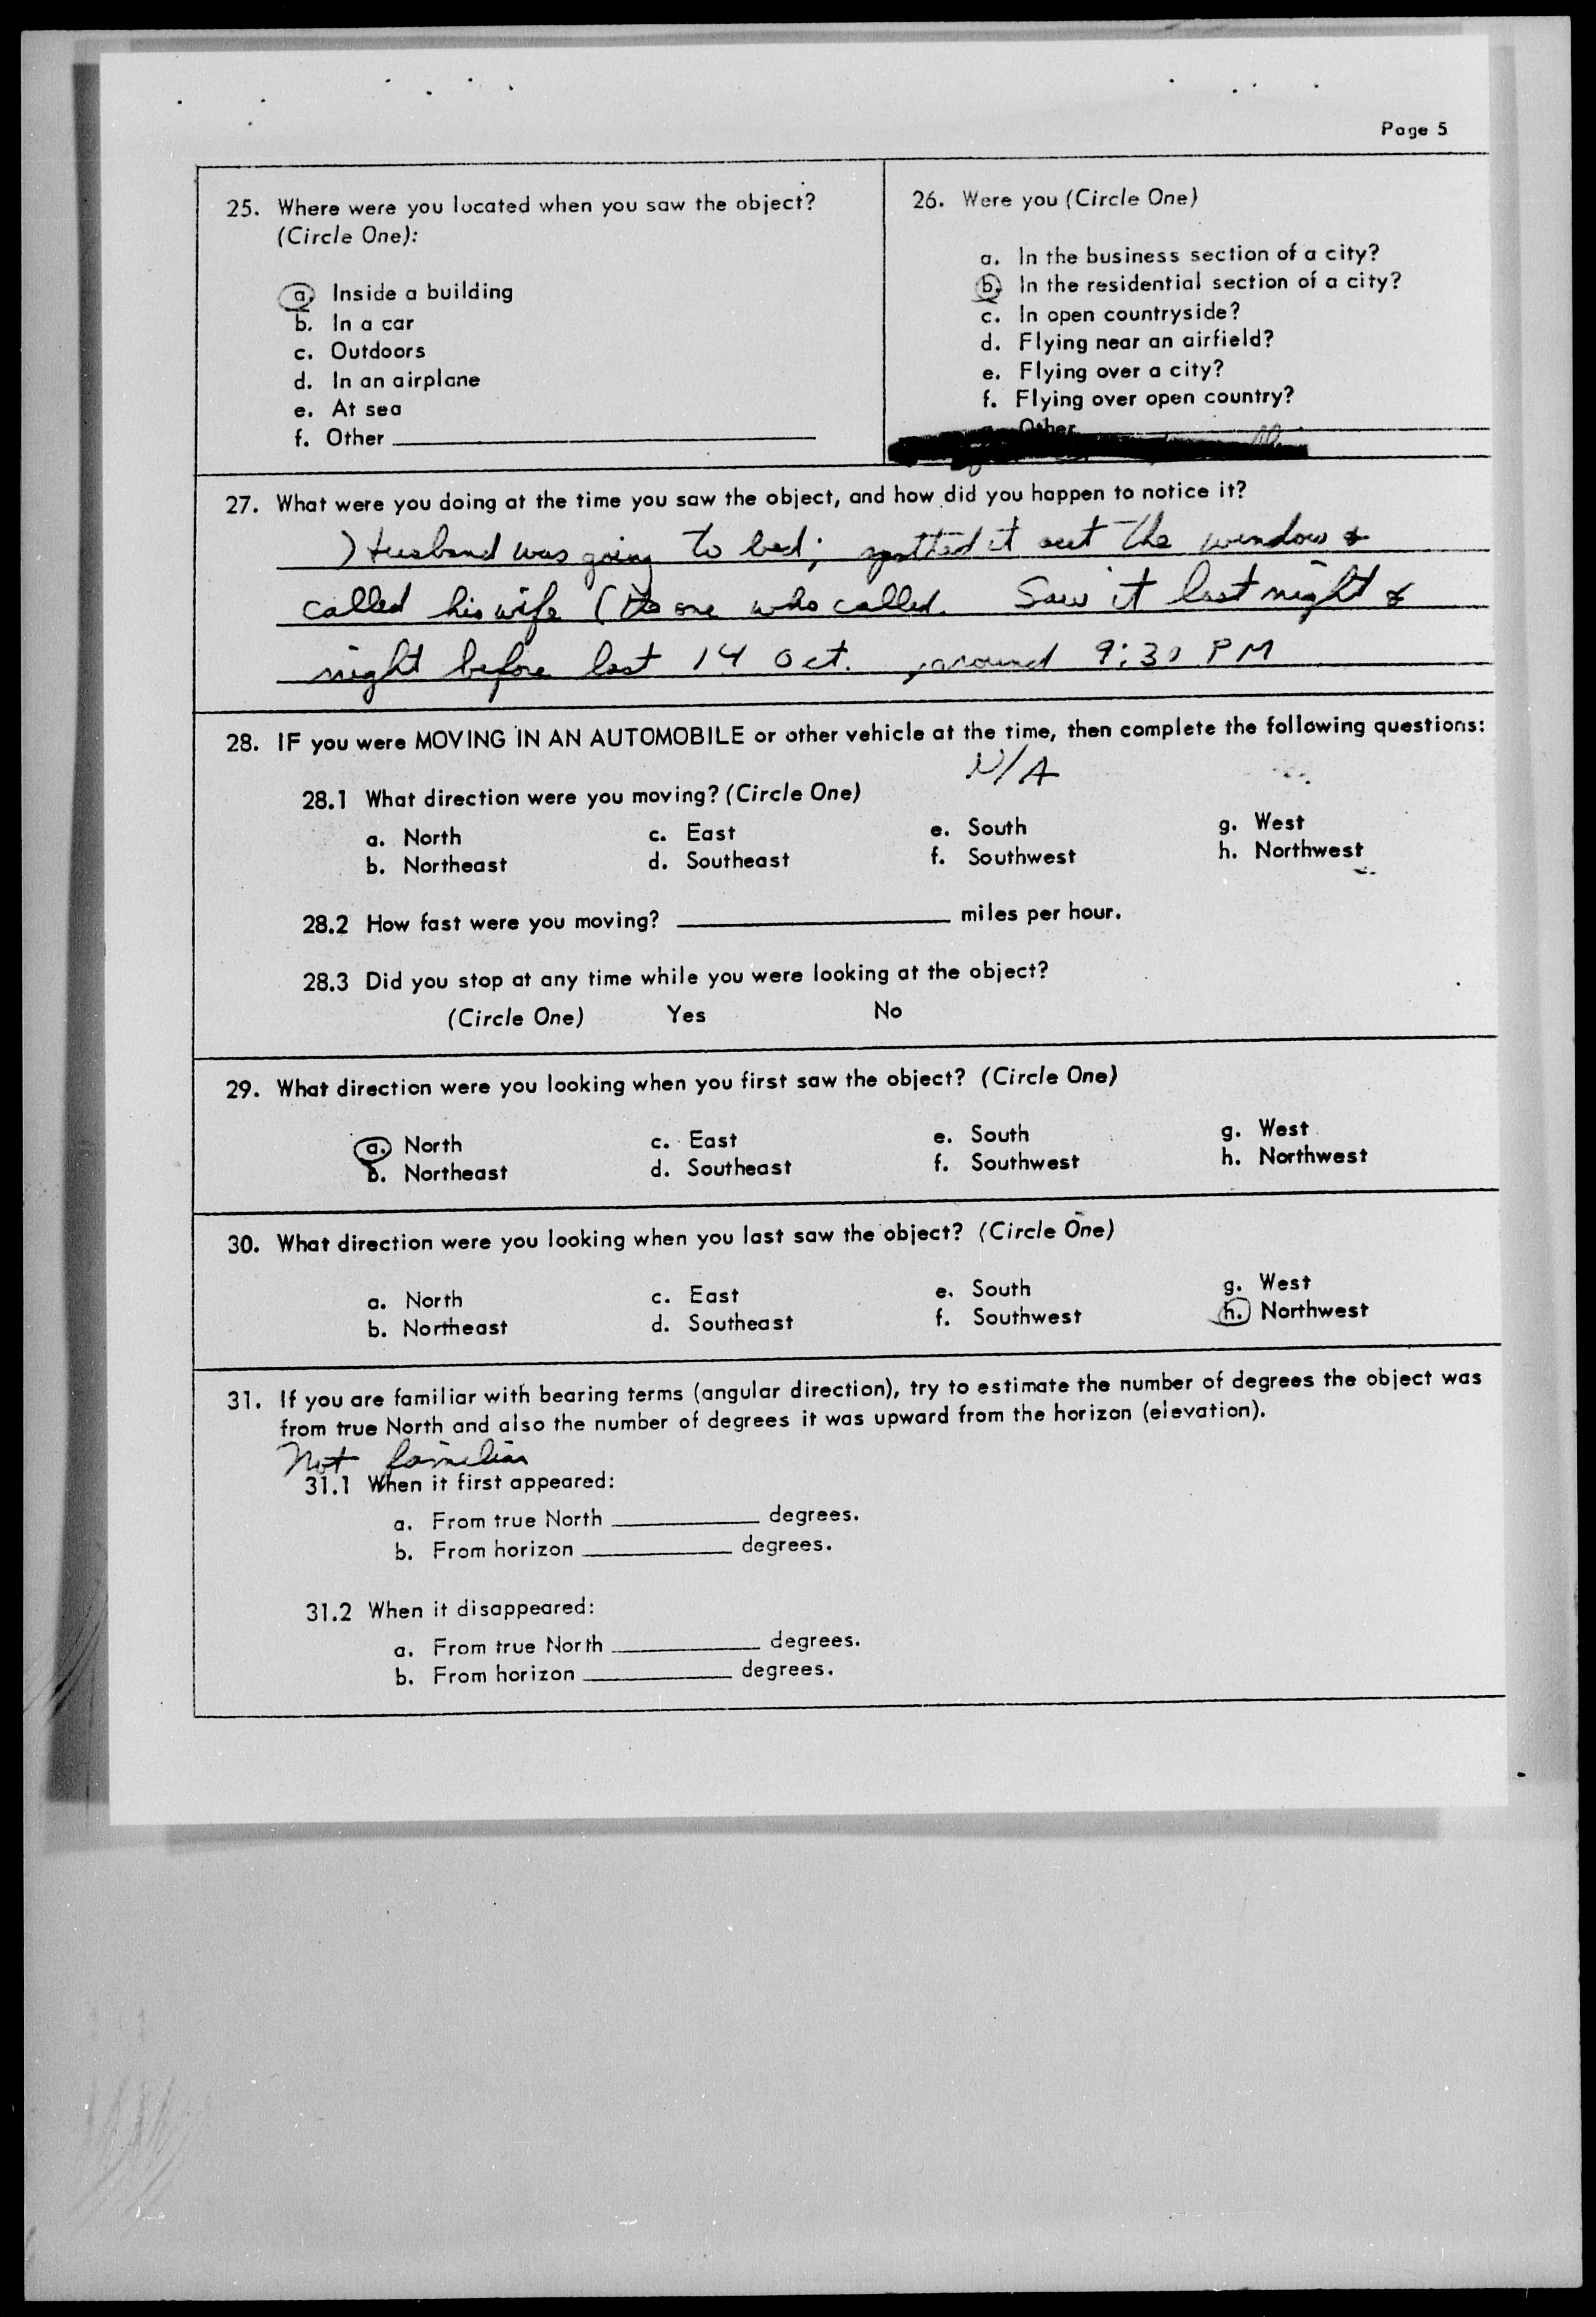 Page 5
25. Where were you located when you saw the object?
(Circle One):
a. Inside a building
b. In a car
c. Outdoors
d. In an airplane
e. At sea
f. Other
26. Were you (Circle One)
a. In the business section of a city?
b. In the residential section of a city?
c. In open countryside?
d. Flying near an airfield?
e. Flying over a city?
f. Flying over open country?
Other
27. What were you doing at the time you saw the object, and how did you happen to notice it?
) Husband was going to bed; spotted it out the window &
called his wife (the one who called. Saw it last night &
night before last 14 Oct. , around 9:30 PM
28. IF you were MOVING IN AN AUTOMOBILE or other vehicle at the time, then complete the following questions:
N/A
28.1 What direction were you moving? (Circle One)
a. North c. East e. South g. West
b. Northeast d. Southeast f. Southwest h. Northwest
28.2 How fast were you moving? miles per hour.
28.3 Did you stop at any time while you were looking at the object?
(Circle One) Yes No
29. What direction were you looking when you first saw the object? (Circle One)
a. North c. East e. South g. West
b. Northeast d. Southeast f. Southwest h. Northwest
30. What direction were you looking when you last saw the object? (Circle One)
a. North c. East e. South g. West
b. Northeast d. Southeast f. Southwest h. Northwest
31. If you are familiar with bearing terms (angular direction), try to estimate the number of degrees the object was
from true North and also the number of degrees it was upward from the horizon (elevation).
Not familiar
31.1 When it first appeared:
a. From true North degrees.
b. From horizon degrees.
31.2 When it disappeared:
a. From true North degrees.
b. From horizon degrees.